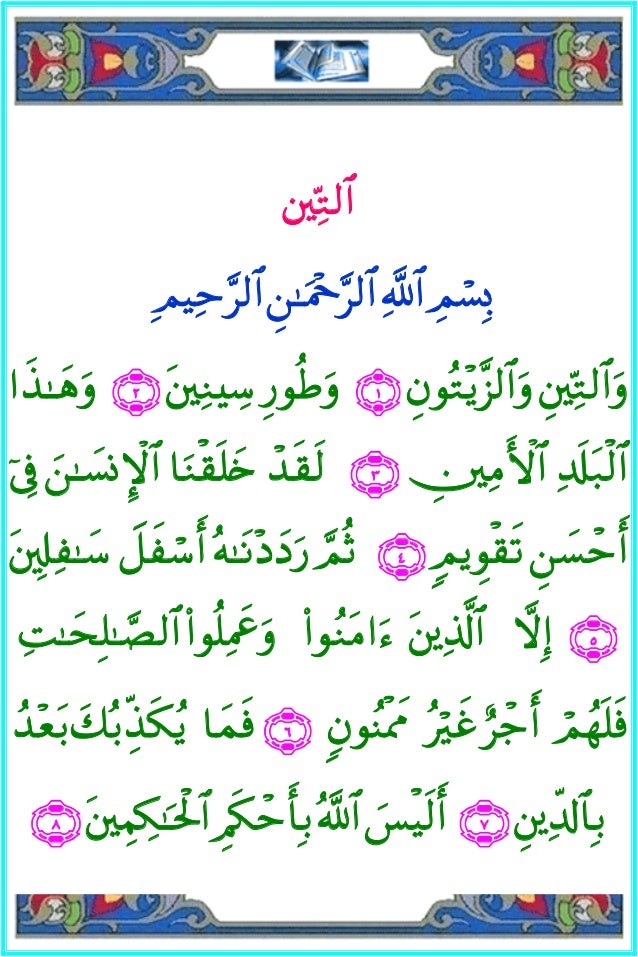 ٱلتِّين
بِسْمِ ٱللَّهِ ٱلرَّحْمَـٰنِ ٱلرَّحِيمِ
وَٱلتِّينِ وَٱلزَّيْتُونِ ١ وَطُورِ سِينِينَ ٢ وَهَـٰذَا
ٱلْبَلَدِ ٱلْأَمِينِ ٣ لَقَدْ خَلَقْنَا ٱلْإِنسَـٰنَ فِىٓ
أَحْسَنِ تَقْوِيمٍ ٤ ثُمَّ رَدَدْنَـٰهُ أَسْفَلَ سَـٰفِلِينَ
٥ إِلَّا ٱلَّذِينَ ءَامَنُوا۟ وَعَمِلُوا۟ ٱلصَّـٰلِحَـٰتِ
فَلَهُمْ أَجْرٌ غَيْرُ مَمْنُونٍ ٦ فَمَا يُكَذِّبُكَ بَعْدُ
بِٱلدِّينِ ٧ أَلَيْسَ ٱللَّهُ بِأَحْكَمِ ٱلْحَـٰكِمِينَ ٨